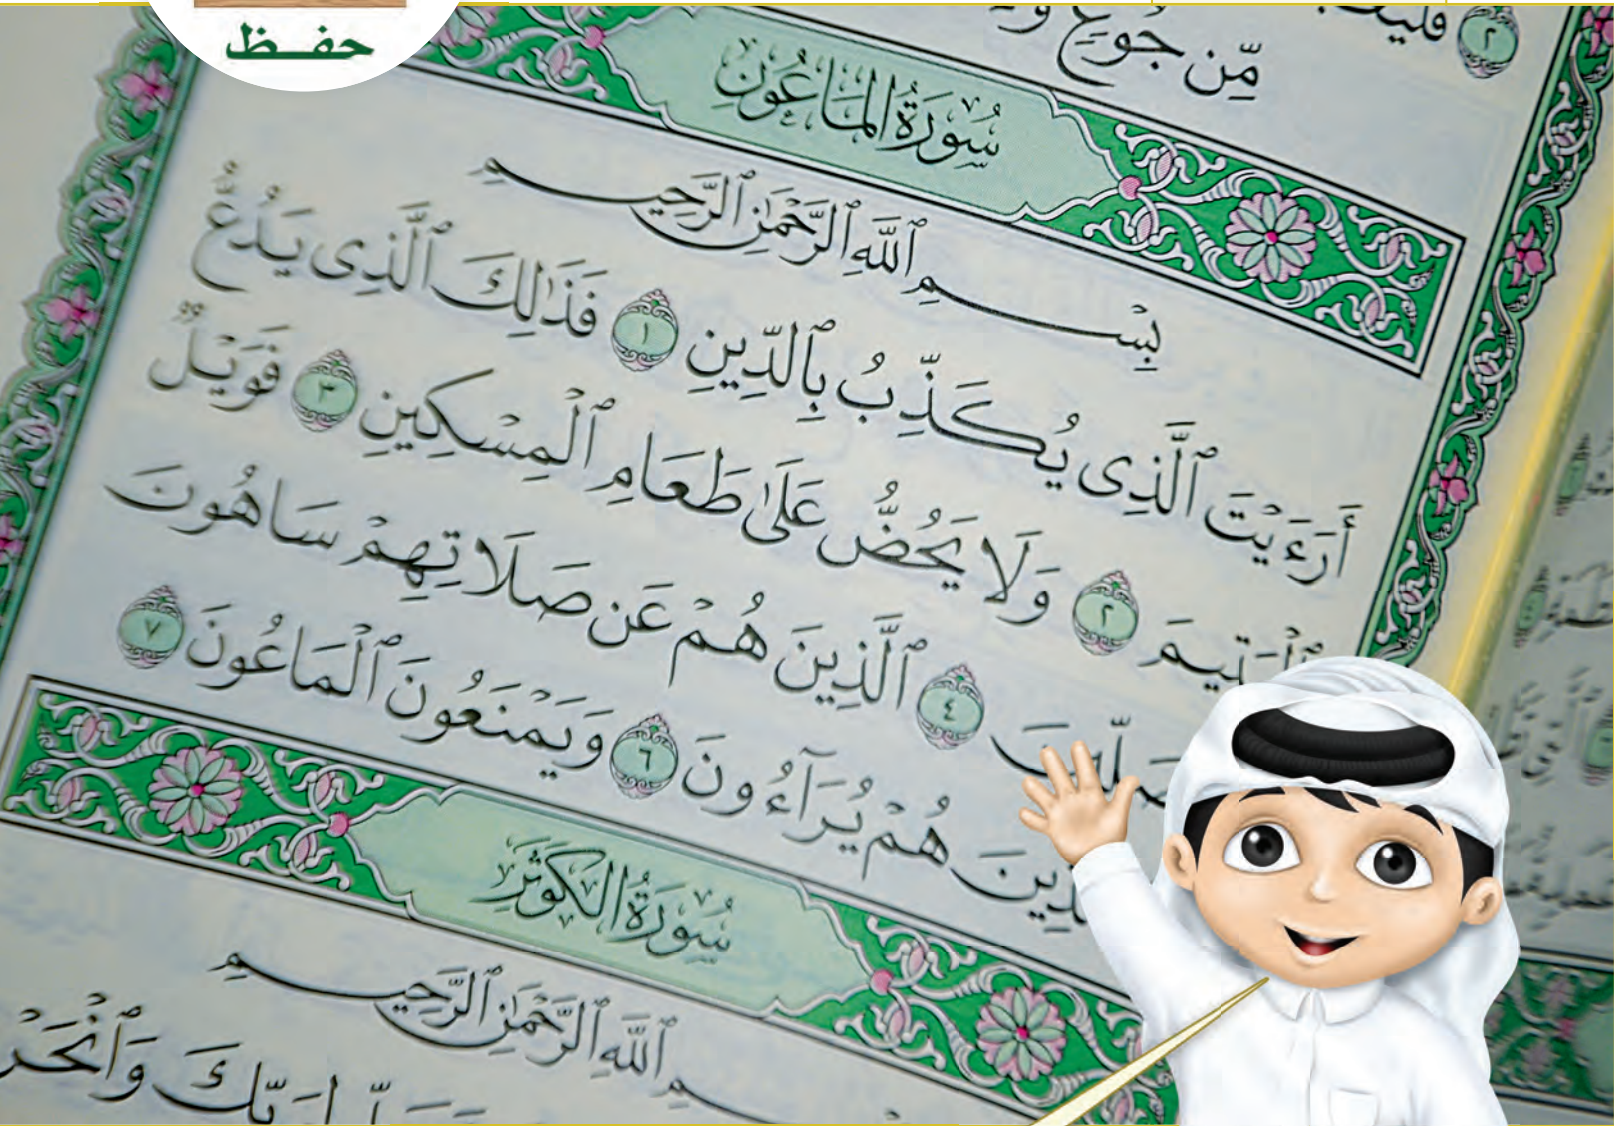 حفظ
مِّن جُوعٍ
سُورَةُ المَاعُونِ
بِسْمِ ٱللَّهِ ٱلرَّحْمَٰنِ ٱلرَّحِيمِ
أَرَءَيْتَ ٱلَّذِى يُكَذِّبُ بِٱلدِّينِ ١ فَذَٰلِكَ ٱلَّذِى يَدُعُّ
ٱلْيَتِيمَ ٢ وَلَا يَحُضُّ عَلَىٰ طَعَامِ ٱلْمِسْكِينِ ٣ فَوَيْلٌ
٤ ٱلَّذِينَ هُمْ عَن صَلَاتِهِمْ سَاهُونَ
هُمْ يُرَآءُونَ ٦ وَيَمْنَعُونَ ٱلْمَاعُونَ ٧
سُورَةُ الكَوْثَرِ
بِسْمِ ٱللَّهِ ٱلرَّحْمَٰنِ ٱلرَّحِيمِ
وَٱنْحَرْ